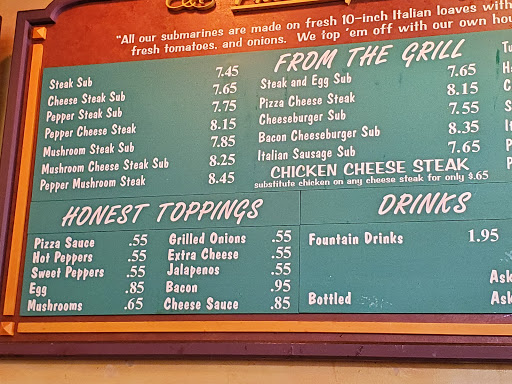 "All our submarines are made on fresh 10-inch Italian loaves with
fresh tomatoes, and onions. We top 'em off with our own
FROM THE GRILL
Steak Sub 7.45
Cheese Steak Sub 7.65
Pepper Steak Sub 7.75
Pepper Cheese Steak 8.15
Mushroom Steak Sub 7.85
Mushroom Cheese Steak Sub 8.25
Pepper Mushroom Steak 8.45
Steak and Egg Sub 7.65
Pizza Cheese Steak 8.15
Cheeseburger Sub 7.55
Bacon Cheeseburger Sub 8.35
Italian Sausage Sub 7.65
CHICKEN CHEESE STEAK
substitute chicken on any cheese steak for only $.65
HONEST TOPPINGS
Pizza Sauce .55
Hot Peppers .55
Sweet Peppers .55
Egg .85
Mushrooms .65
Grilled Onions .55
Extra Cheese .55
Jalapenos .55
Bacon .95
Cheese Sauce .85
DRINKS
Fountain Drinks 1.95
Ask
Bottled Ask